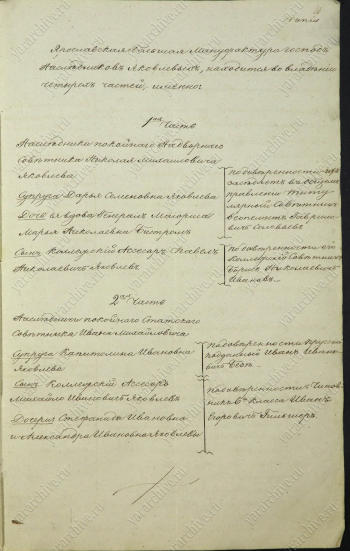 Копия
Ярославская Большая Мануфактура господъ
Наслѣдниковъ Яковлевыхъ, находится во владѣнiи
четырехъ частей, именно:
1ая Часть
Наслѣдники покойнаго Надворнаго
Совѣтника Николая Михайловича
Яковлева
Супруга Дарья Семеновна Яковлева
Дочь ея вдова Генералъ Маiорша
Марья Николаевна Бистромъ
по довѣренности
въ общемъ
управленiи Титу
лярный Совѣтникъ
Гаври
ловичъ Соловьевъ
Сынъ Коллежскiй Асессоръ Павелъ
Николаевичъ Яковлевъ
по довѣренности его
Коллежскiй Совѣтникъ
Борисъ Николаевичъ
Ивановъ
2ая Часть
Наслѣдники покойнаго Статскаго
Совѣтника Ивана Михайловича
Супруга Капитолина Ивановна
Яковлева
по довѣренности Прусскiй
подданный Иванъ Ивано
вичъ
Сынъ Коллежскiй Асессоръ
Михайло Ивановичъ Яковлевъ
Дочери Стефанида Ивановна
и Александра Ивановна Яковлевы
по довѣренности Чинов
никъ 6го класса Иванъ
Егоровичъ
yararchive.ru